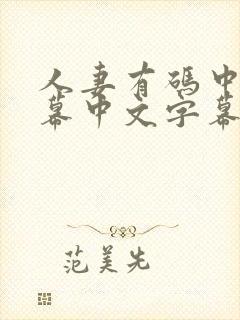 人妻有码中
幕中文字幕
范美先